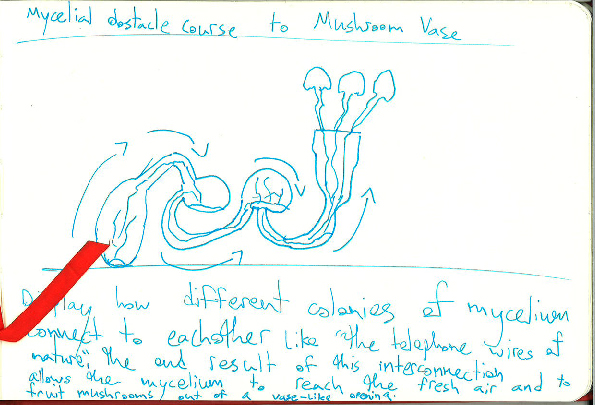 Mycelial obstacle course to Mushroom Vase
Display how different colonies of mycelium
connect to eachother like "the telephone wires of
nature", the end result of this interconnection
allows the mycelium to reach the fresh air and to
fruit mushrooms out of a vase-like opening.